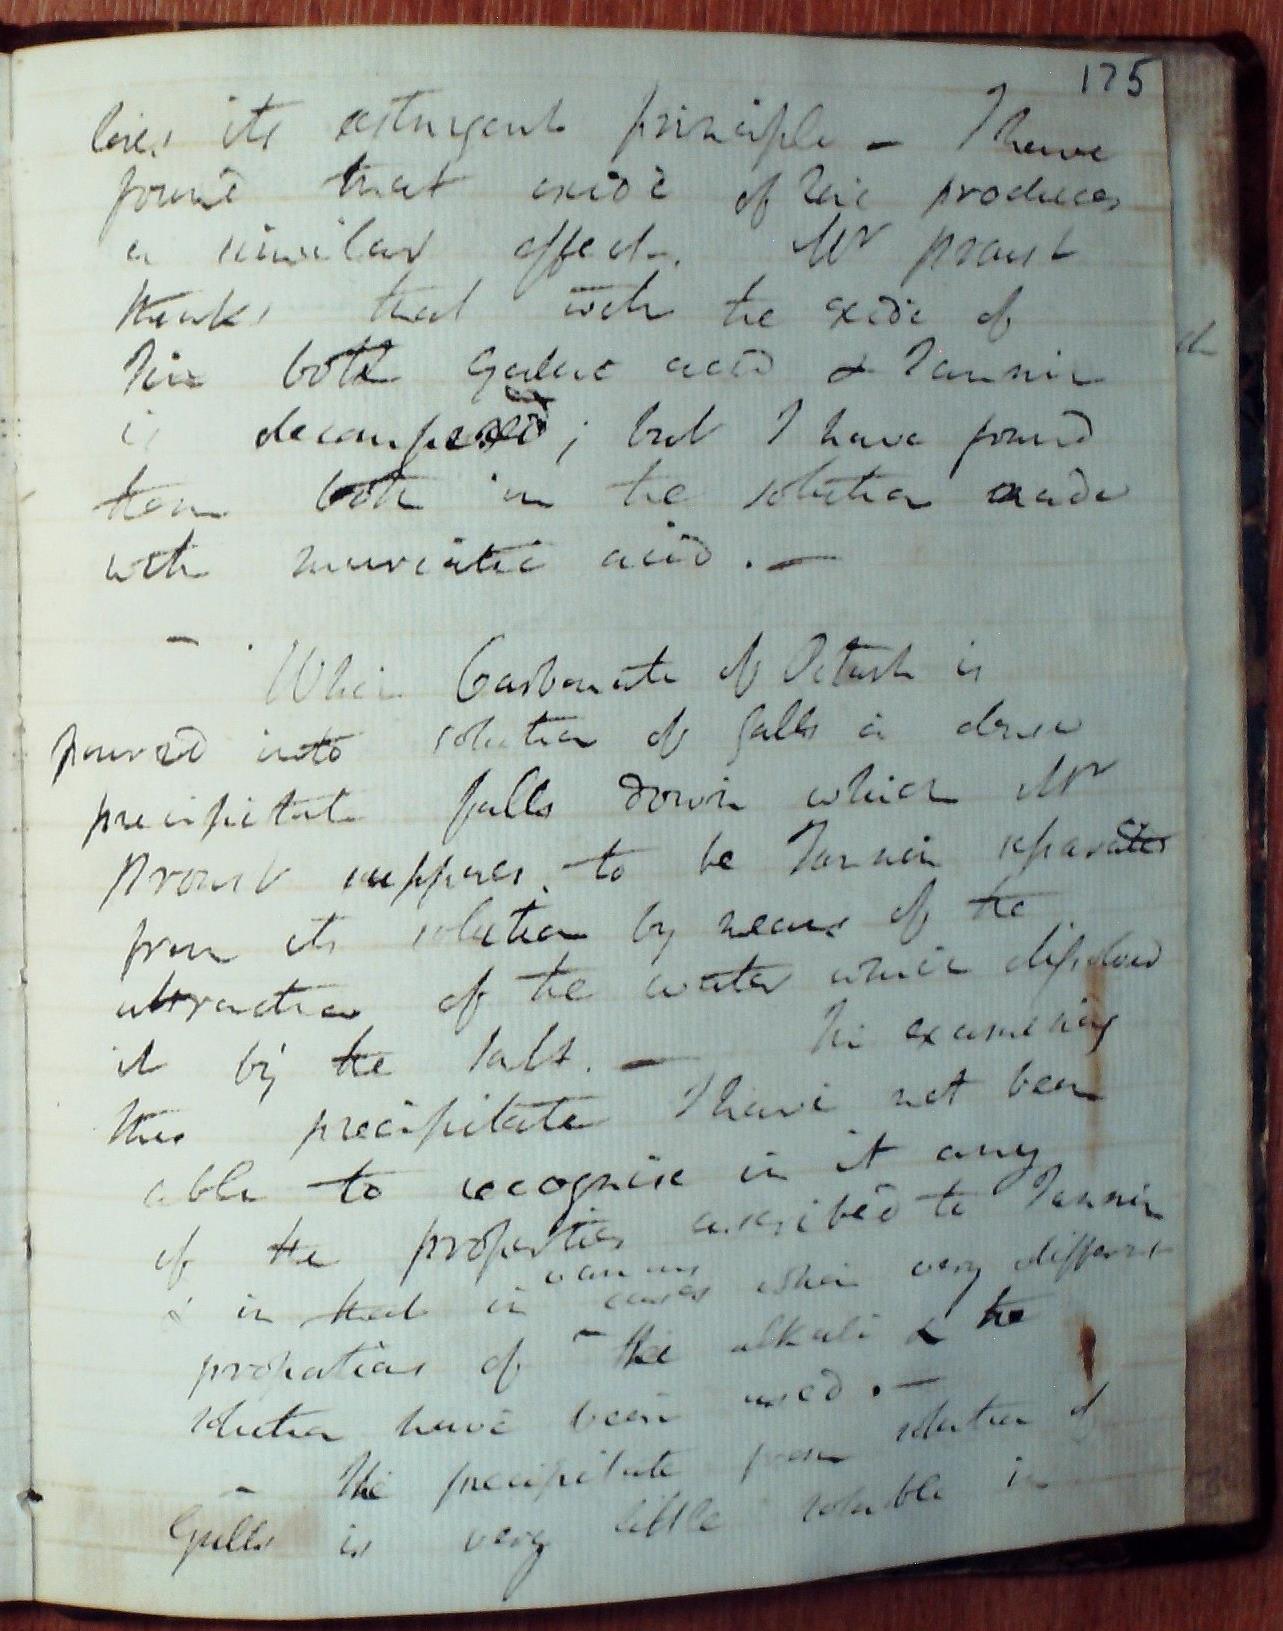 175
loses its astringent principle – I have
found that oxide of Tin produces
a similar effect. Mr Proust
thinks that with the oxide of
Tin both Gallic acid & Tannin
is decomposed; but I have found
them both in the solution made
with muriatic acid. –
– When Carbonate of Potash is
poured into solution of galls a dense
precipitate falls down which Mr
Proust supposes to be Tannin separated
from its solution by means of the
attraction of the water which dissolved
it by the salt. – In examining
this precipitate I have not been
able to recognise in it any
of the properties ascribed to Tannin
various
& in that in cases when very different
proportions of the alkali & the
solution have been used. –
– The precipitate from solution of
Galls is very little soluble in